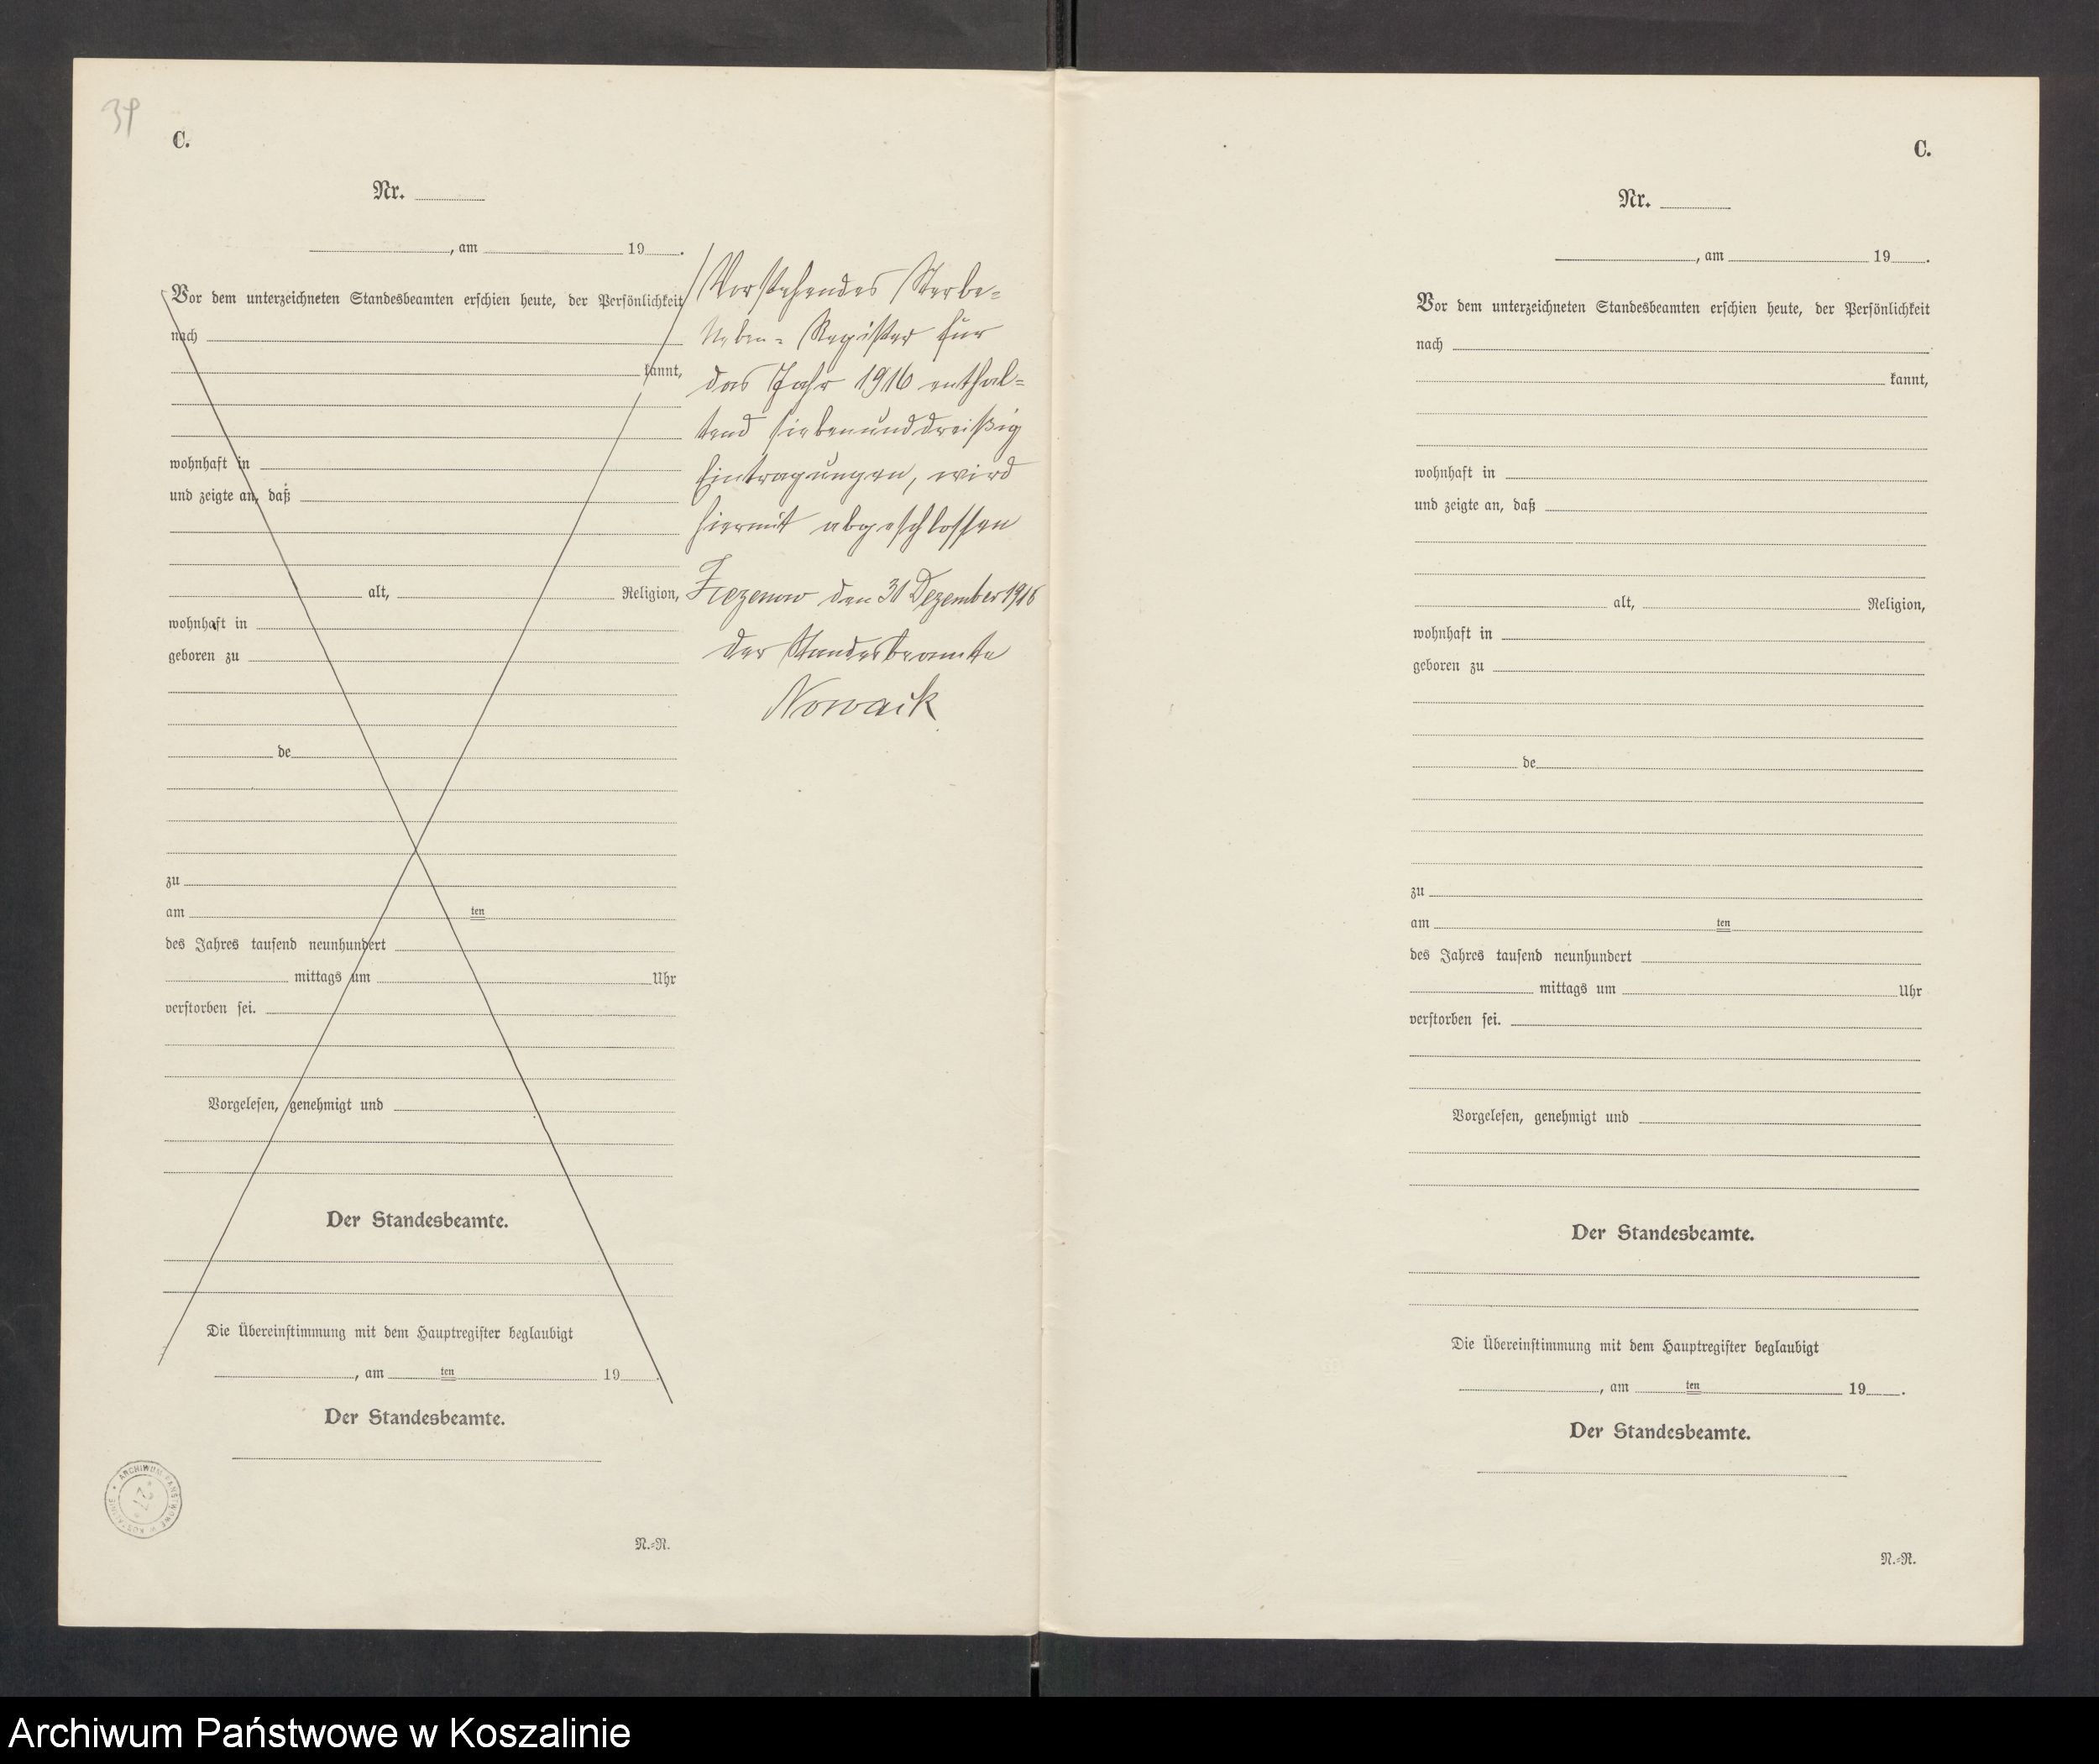 39
C.
Nr.
, am 19 .
Vor dem unterzeichneten Standesbeamten erschien heute, der Persönlichkeit
nach
kannt,
wohnhaft in
und zeigte an, daß
alt, Religion,
wohnhaft in
geboren zu
de
zu
am ten
des Jahres tausend neunhundert
mittags um Uhr
verstorben sei.
Vorgelesen, genehmigt und
Der Standesbeamte.
Die Übereinstimmung mit dem Hauptregister beglaubigt
, am ten 19 .
Der Standesbeamte.
ARCHIWUM PAŃSTWOWE W KOSZALINIE
27
N.=R.
Vorstehendes Sterbe=
Neben=Register für
das Jahr 1916 enthal=
tend siebenunddreißig
Eintragungen, wird
hiermit abgeschlossen
Zezenow den 31 Dezember 1916
der Standesbeamte
Nowack
C.
Nr.
, am 19 .
Vor dem unterzeichneten Standesbeamten erschien heute, der Persönlichkeit
nach
kannt,
wohnhaft in
und zeigte an, daß
alt, Religion,
wohnhaft in
geboren zu
de
zu
am ten
des Jahres tausend neunhundert
mittags um Uhr
verstorben sei.
Vorgelesen, genehmigt und
Der Standesbeamte.
Die Übereinstimmung mit dem Hauptregister beglaubigt
, am ten 19 .
Der Standesbeamte.
N.=R.
Archiwum Państwowe w Koszalinie